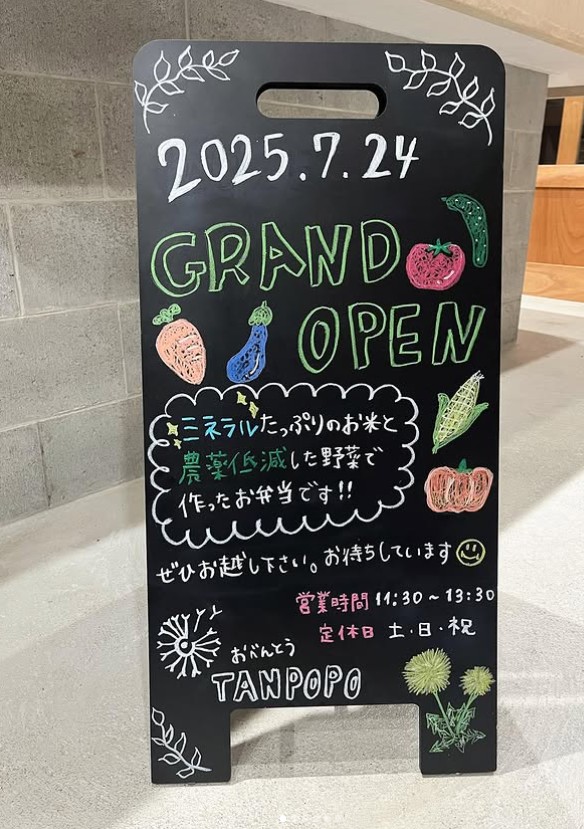 2025.7.24
GRAND
OPEN
ミネラルたっぷりのお米と
農薬低減した野菜で
作ったお弁当です!!
ぜひお越し下さい。お待ちしています
営業時間 11:30~13:30
定休日 土・日・祝
おべんとう
TANPOPO